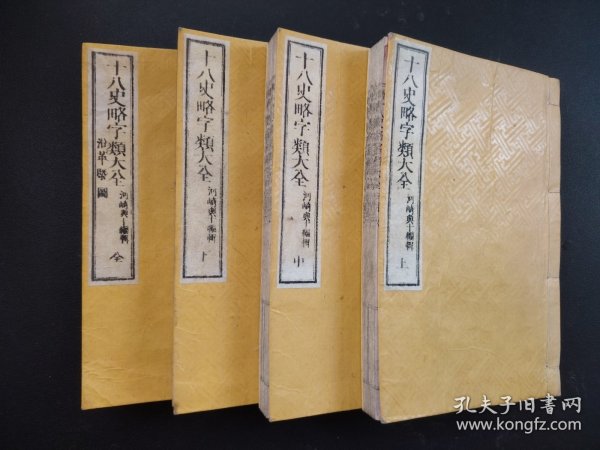 十八史略字類大全 河嶋興十編輯 上
十八史略字類大全 河嶋興十編輯 中
十八史略字類大全 河嶋興十編輯 下
十八史略字類大全 河嶋興十編輯
沿革竪圖 全
孔夫子旧书网
www.kongfz.com